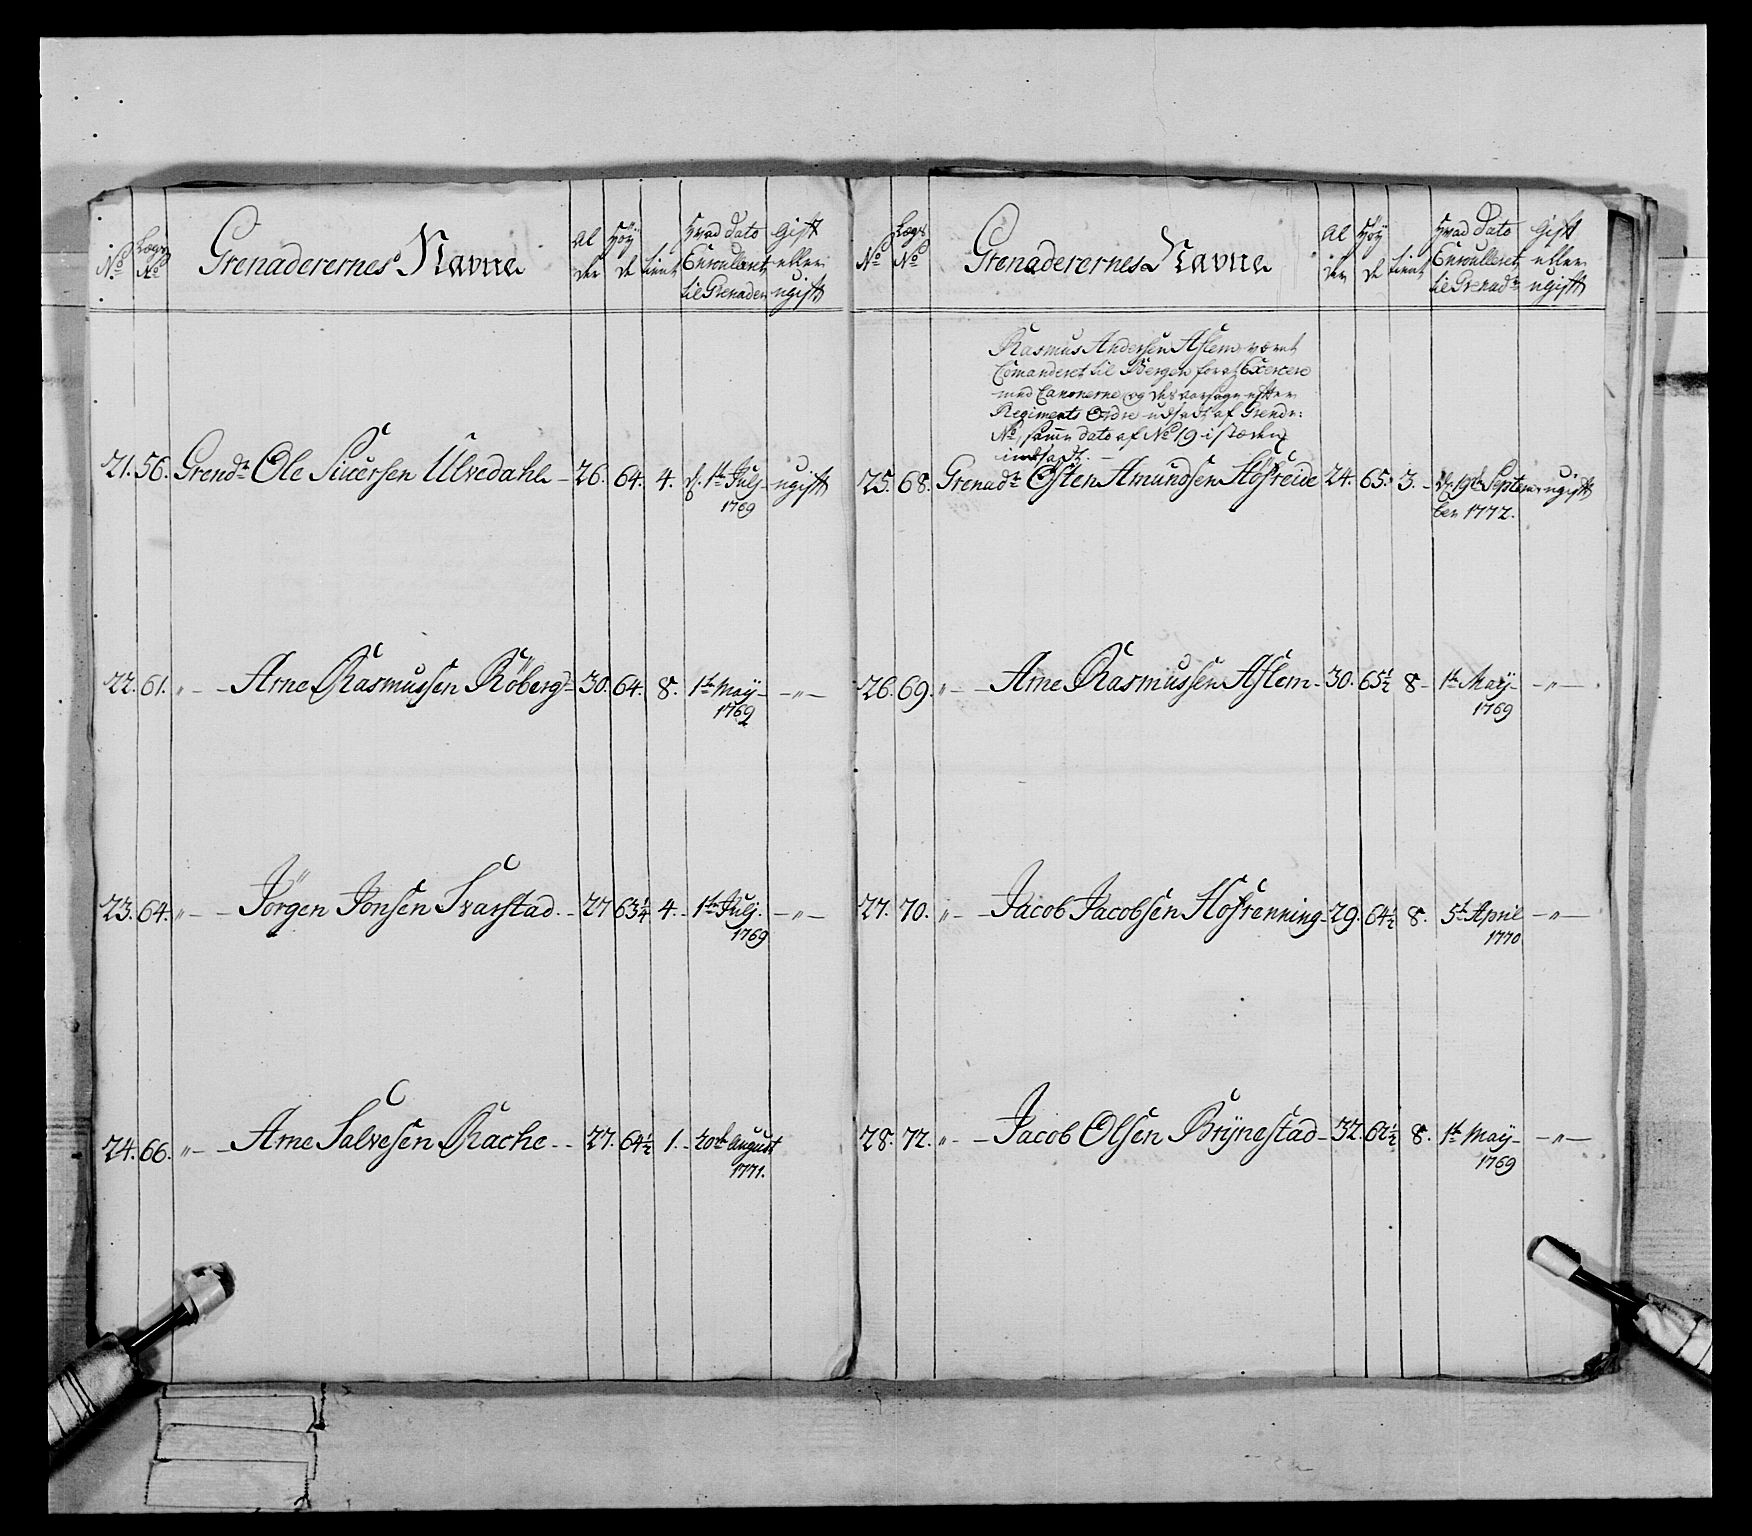 No
Lægs No
Grenaderernes Navne
Al der
Høy de
tient
Hvad dato Enroulleret til Grenader
Gift eller ugift
21. 56. Grendr Ole Siversen Ulvedahl 26. 64. 4. d. 1te Julj 1769 ugift
22. 61. „ Arne Rasmussen Röberg 30. 64. 8. 1te Maÿ 1769 „
23. 64. „ Jörgen Jonsen Svarstad 27 63¼ 4. 1te Julj. 1769 „
24. 66. „ Arne Salvesen Rache 27. 64½ 1. 20de August 1771.
No
Lægs No
Grenaderernes Navne
Al der
Høy de
tient
Hvad Dato Enroulleret til Grenadr
Gift eller ugift
Rasmus Andersen Aslem været
Comanderet til Bergen for at Exercere
med Canonerne og der
Regiments Ordre udsadt af Grendr:
No, samme dato af No 19 i stæden
indsadt.
25. 68. Grenadr Østen Amundsen Høfreide 24. 65. 3. 19de Septem ber 1772. ugift
26. 69. „ Arne Rasmussen Aslem 30. 65½ 8 1te Maÿ 1769 „
27. 70. „ Jacob Jacobsen Hofrenning 29. 64½ 8. 5te April 1770 „
28. 72. „ Jacob Olsen Brÿnestad 32. 62½ 8. 1te Maÿ 1769 „